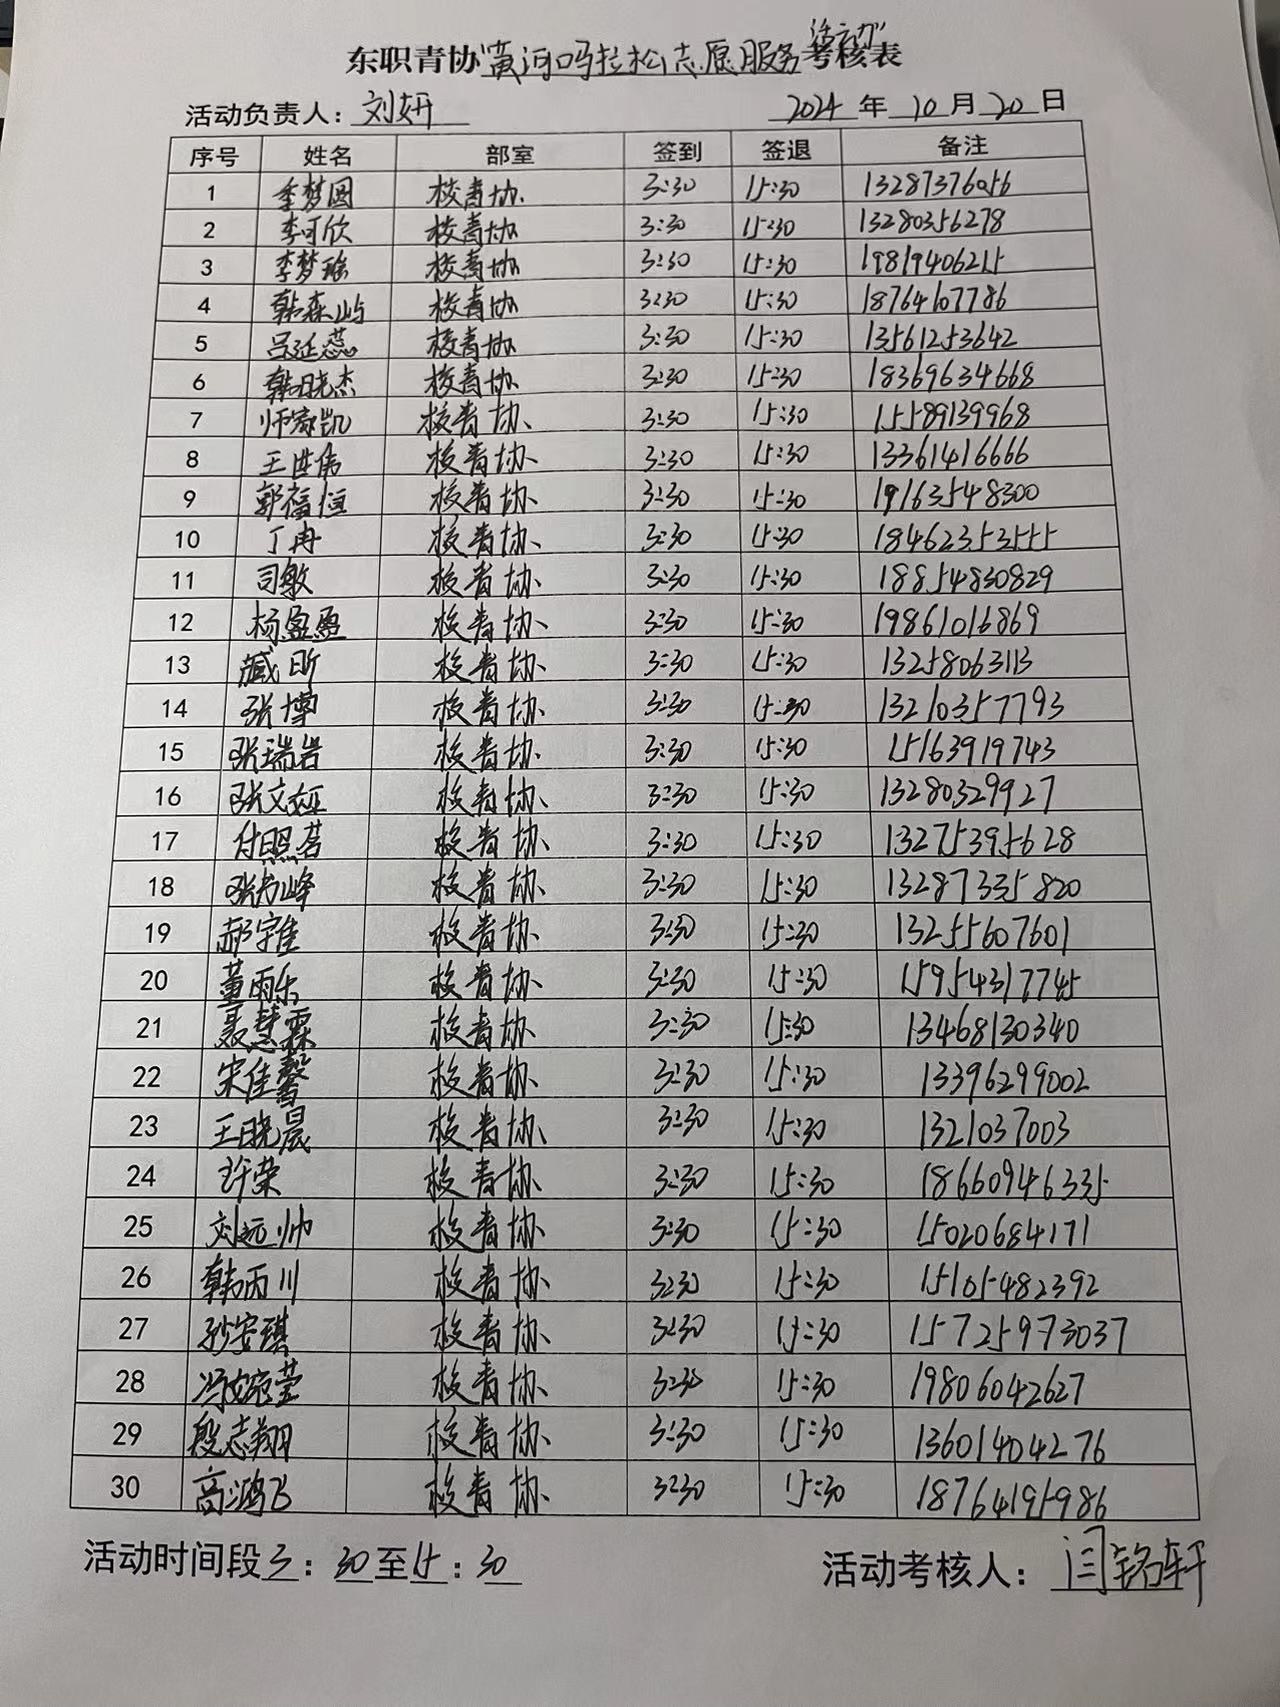 活动
东职青协"黄河口马拉松志愿服务"考核表
活动负责人：刘妍 2024年10月20日
序号 姓名 部室 签到 签退 备注
1 季梦圆 校青协 3:30 15:30 13287376056
2 李可欣 校青协 3:30 15:30 13280356278
3 李梦瑶 校青协 3:30 15:30 19819406215
4 韩森屿 校青协 3:30 15:30 18764607786
5 吕延蕊 校青协 3:30 15:30 13561253642
6 韩晓杰 校青协 3:30 15:30 18369634668
7 师家凯 校青协 3:30 15:30 15589139968
8 王世伟 校青协 3:30 15:30 13361416666
9 郭福恒 校青协 3:30 15:30 19163548300
10 丁冉 校青协 3:30 15:30 18462353555
11 司敏 校青协 3:30 15:30 18854830829
12 杨盈盈 校青协 3:30 15:30 19861016869
13 臧昕 校青协 3:30 15:30 13258063113
14 张博 校青协 3:30 15:30 13210357793
15 张瑞岩 校青协 3:30 15:30 15163919743
16 张文娅 校青协 3:30 15:30 13280329927
17 付照茗 校青协 3:30 15:30 13275395628
18 校青协 3:30 15:30 13287335820
19 郝宇佳 校青协 3:30 15:30 13255607601
20 董雨乐 校青协 3:30 15:30 15954317745
21 聂慧霖 校青协 3:30 15:30 13468130340
22 宋佳馨 校青协 3:30 15:30 13396299002
23 王晓晨 校青协 3:30 15:30 1321037003
24 许荣 校青协 3:30 15:30 18660946335
25 刘远帅 校青协 3:30 15:30 15020684171
26 韩丙川 校青协 3:30 15:30 15105482392
27 孙安琪 校青协 3:30 15:30 15725973037
28 冯婉莹 校青协 3:30 15:30 19806042627
29 殷志翔 校青协 3:30 15:30 13601404276
30 高鸿飞 校青协 3:30 15:30 18764195986
活动时间段3：30至15：30 活动考核人：闫铭轩